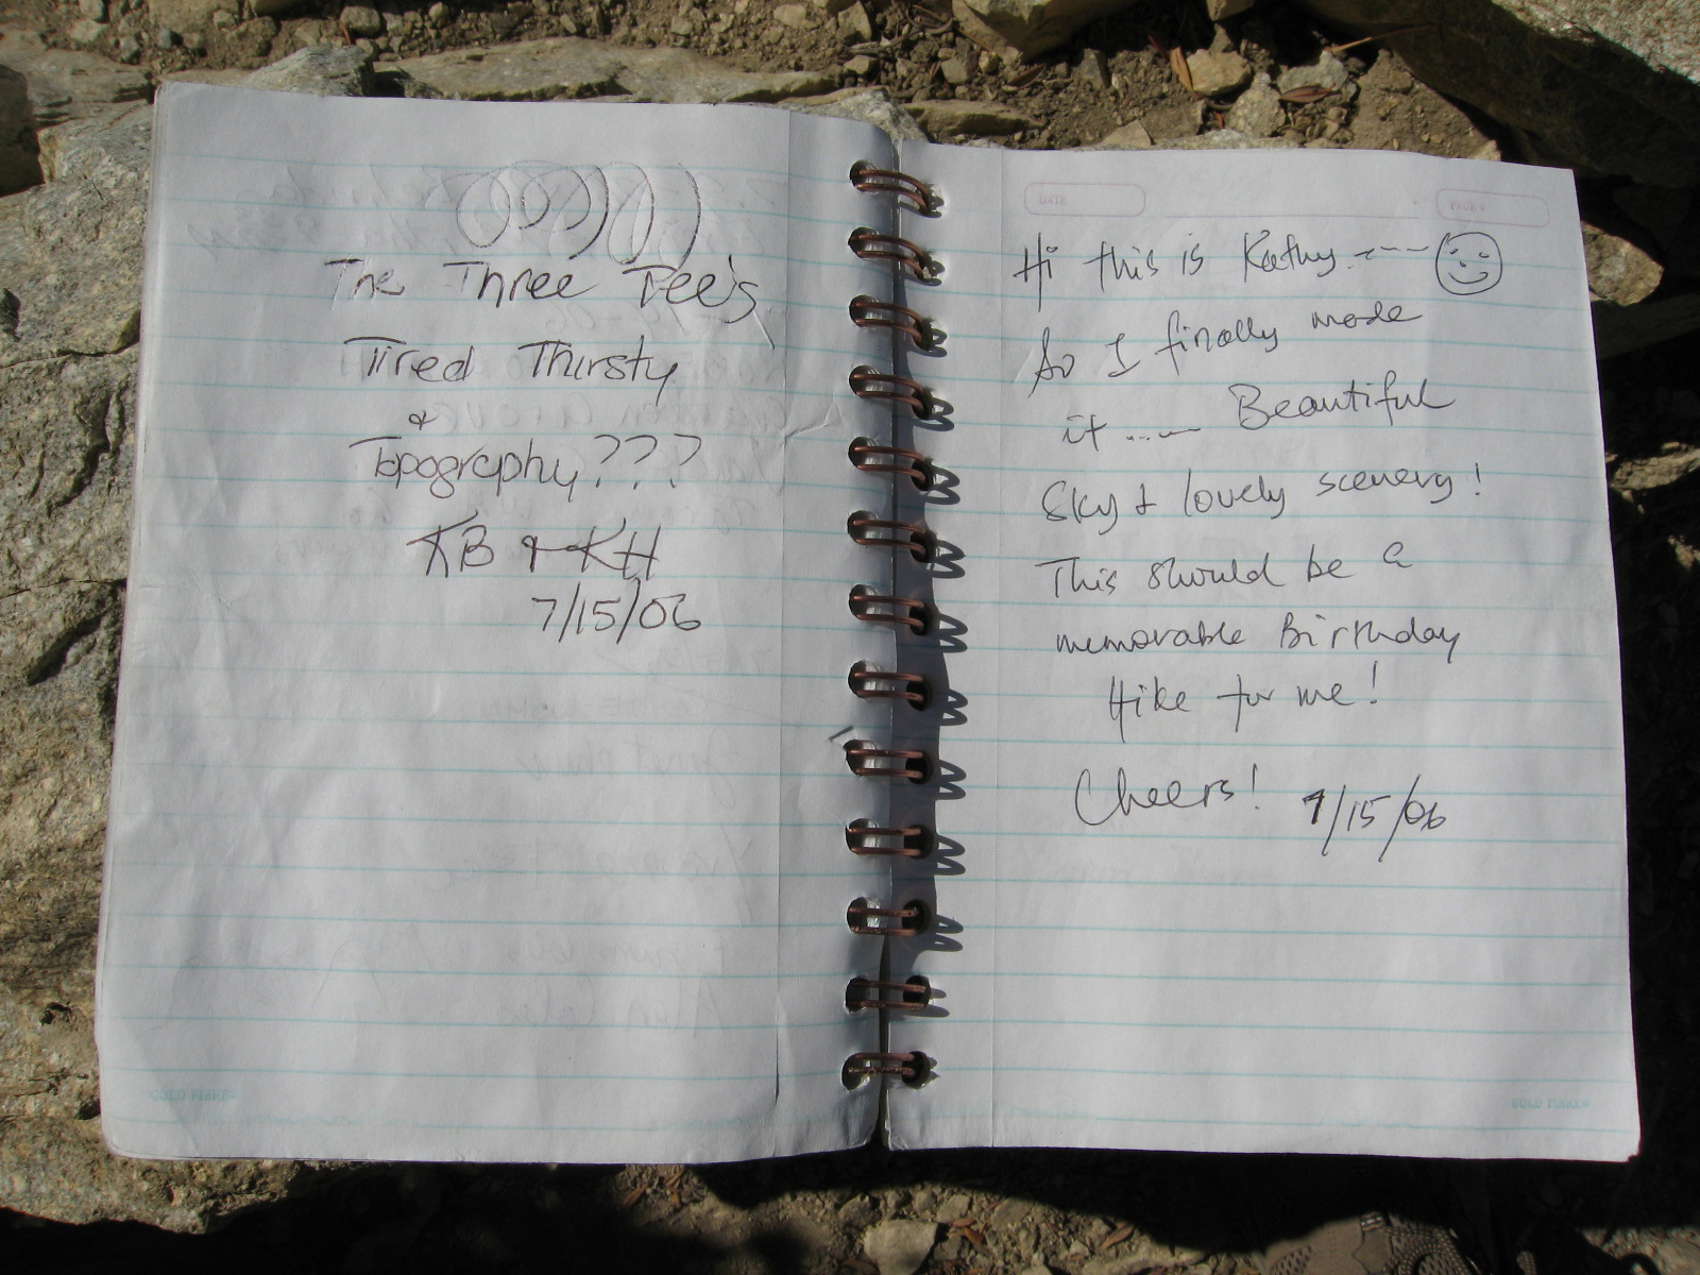 The Three Tee's
Tired Thirsty
&
Topography???
KB & KH
7/15/06
GOLD FIBRE
DATE
PAGE #
Hi this is Kathy.----
So I finally made
it ..... Beautiful
Sky & lovely scenery!
This should be a
memorable Birthday
Hike for me!
Cheers! 7/15/06
GOLD FIBRE